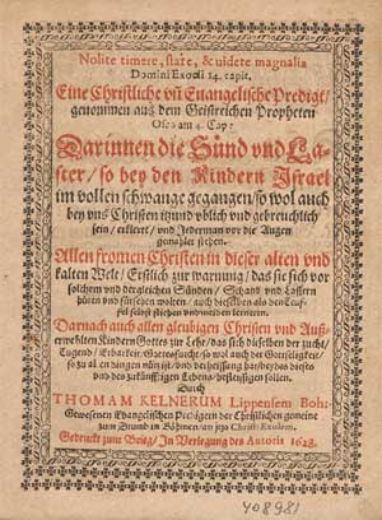 Nolite timere, state, & uidete magnalia
Domini Exodi 14. capit.
Eine Christliche vñ Euangelische Predigt/
genommen aus dem Geistreichen Propheten
Osea am 4. Cap:
Darinnen die Sünd vnd La-
ster/ so bey den Kindern Israel
im vollen schwange gegangen/ so wol auch
bey vns Christen itzund vblich vnd gebreuchlich
sein/ erkleret/ vnd Jederman vor die Augen
gemahlet stehen.
Allen fromen Christen in dieser alten vnd
kalten Welt/ Erstlich zur warnung/ das sie sich vor
solchem vnd dergleichen Sünden/ Schand vnd Lastern
hüten vnd fürsehen wolten/ auch dieselben als den Teuf-
fel selbst fliehen vnd meiden lerneten.
Darnach auch allen gleubigen Christen vnd Auß-
erwehlten Kindern Gottes zur Lehr/ das sich dieselben der zucht/
Tugend/ Erbarkeit/ Gottesfurcht/ so wol auch der Gottseligkeit/
so zu allen dingen nütz ist/ vnd verheissung hat/ beydes dieses
vnd des zukünfftigen Lebens/ befleissigen sollen.
Durch
THOMAM KELNERUM Lippensem Boh:
Gewesenen Evangelischen Predigern der Christlichen gemeine
zum Brund in Böhmen/ an jezo Christi Exulem.
Gedruckt zum Brieg/ In Verlegung des Autoris 1628.
408981